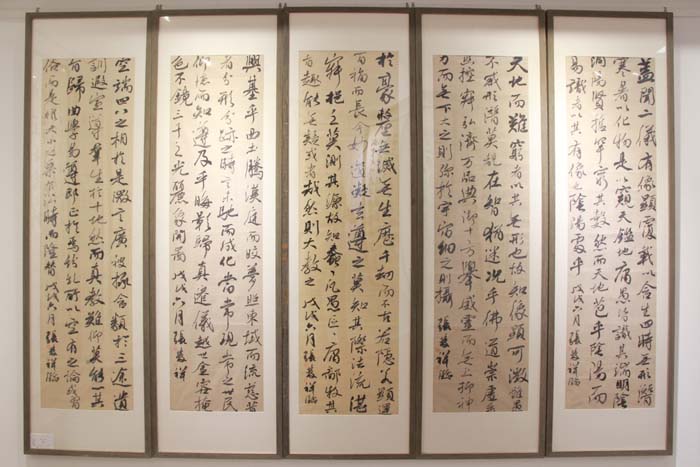 蓋聞二儀有像顯覆載以含生四時無形潛
寒暑以化物是以窺天鑑地庸愚皆識其端明陰
洞陽賢哲罕窮其數然而天地苞乎陰陽而
易識者以其有像也陰陽處乎 戊戌六月張發祥臨
天地而難窮者以其無形也故知像顯可徵雖愚
不惑形潛莫睹在智猶迷況乎佛道崇虛乘
幽控寂弘濟萬品典御十方舉威靈而無上抑神
力而無下大之則彌於宇宙細之則攝 張發祥
於豪釐無滅無生歷千劫而不古若隱若顯運
百福而長今妙道凝玄遵之莫知其際法流湛
寂挹之莫測其源故知蠢蠢凡愚區區庸鄙投其
旨趣能無疑惑者哉然則大教之 戊戌六月張發祥臨
興基乎西土騰漢庭而皎夢照東域而流慈昔
者分形分跡之時言未馳而成化當常現常之世民
仰德而知遵及乎晦影歸真遷儀越世金容掩
色不鏡三千之光麗象開圖 戊戌六月張發祥
空端四八之相於是微言廣被拯含類於三途遺
訓遐宣導群生於十地然而真教難仰莫能一其
旨歸曲學易遵邪正於焉紛糺所以空有之論或習
俗而是非大小之乘乍沿時而隆替 戊戌六月張發祥臨